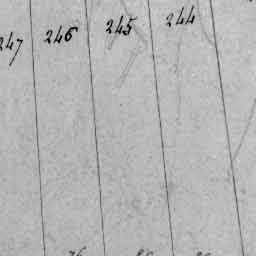 247 246 245 244